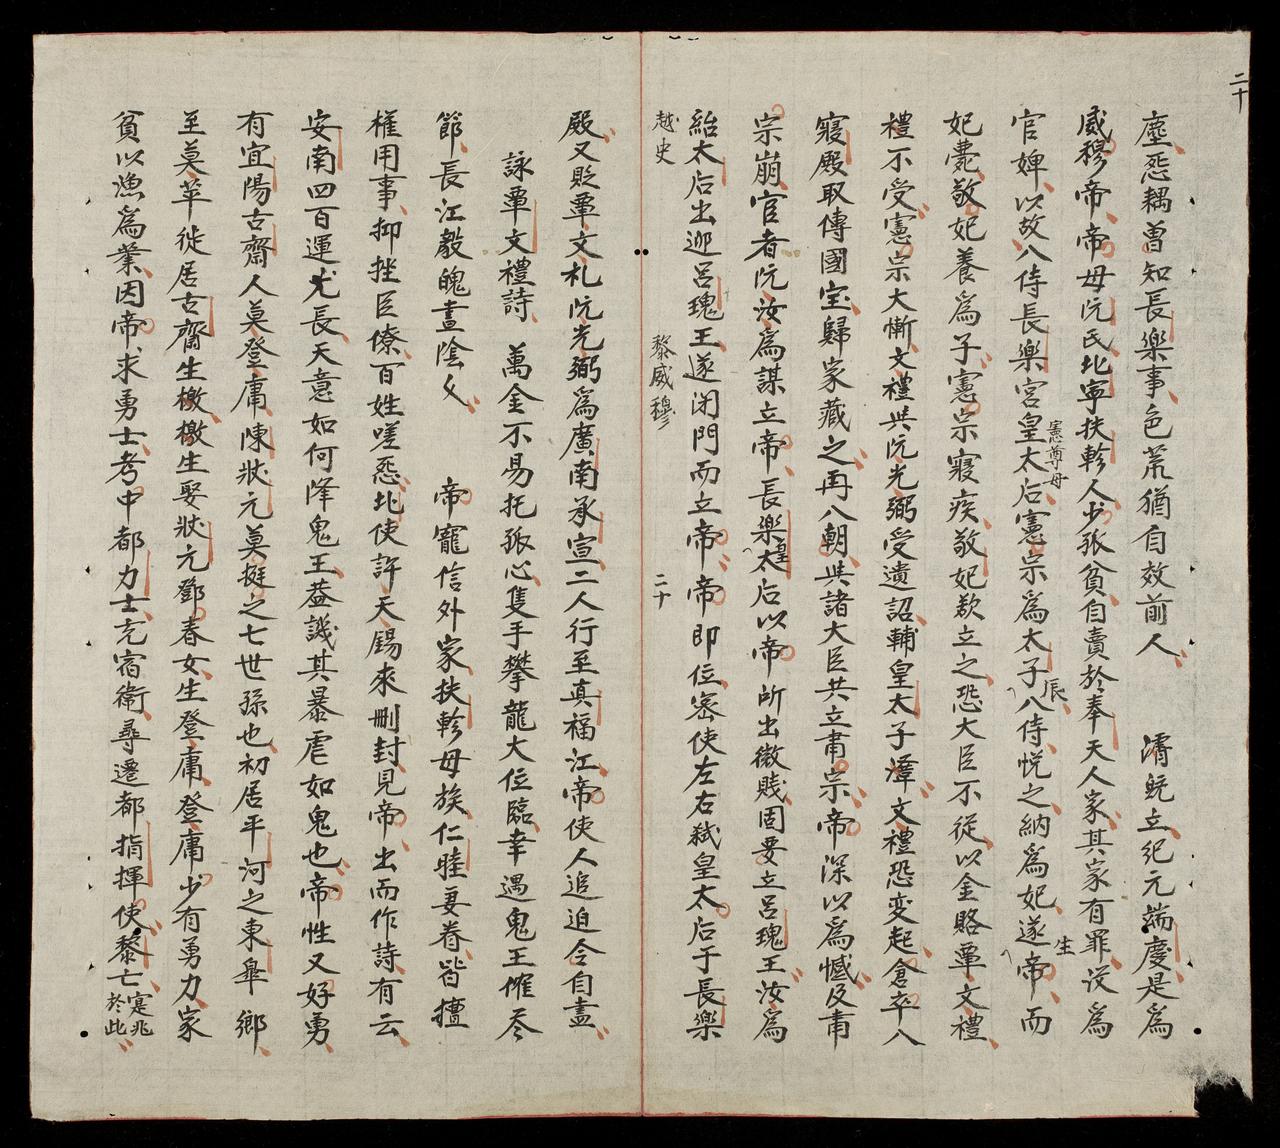 二十
塵惡耦曽知長樂事色荒猶自效前人 濬𩵽立紀元端慶是爲
威穆帝帝母阮氏北寧扶軫人少孤貧自賣於奉天人家其家有罪没爲
官婢以故入侍長樂宮皇太后憲尊母憲宗爲太子辰入侍悅之納爲妃遂生帝而
妃薨敬妃養爲子憲宗寢疾敬妃欵立之恐大臣不從以金賂覃文禮
禮不受憲宗大漸文禮與阮光弼受遺詔輔皇太子㵮文禮恐变起倉卒入
寢殿取傳國宝歸家藏之再入朝與諸大臣共立肅宗帝深以爲憾及肅
宗崩宦者阮汝爲謀立帝長樂皇太后以帝所出微賎固要立呂瑰王汝爲
紿太后出迎呂瑰王遂闭門而立帝帝即位密使左右弑皇太后于長樂
越史 黎威穆 二十
殿又贬覃文礼阮光弼爲廣南承宣二人行至真福江帝使人追迫令自盡
詠覃文禮詩 萬金不易托孤心隻手攀龍大位臨幸遇鬼王傕尽
節長江殺魄晝陰〻 帝寵信外家扶軫母族仁睦妻眷皆擅
権用事抑挫臣僚百姓嗟怨北使許天錫來册封見帝出而作詩有云
安南四百運尤長天意如何降鬼王葢譏其暴虐如鬼也帝性又好勇
有宜陽古齋人莫登庸陳狀元莫挺之七世孫也初居平河之東臯鄉
至莫萍徙居古齋生檄檄生娶狀元鄧春女生登庸登庸少有勇力家
貧以漁爲業因帝求勇士考中都力士充宿衛尋遷都指揮使黎亡寔兆於此